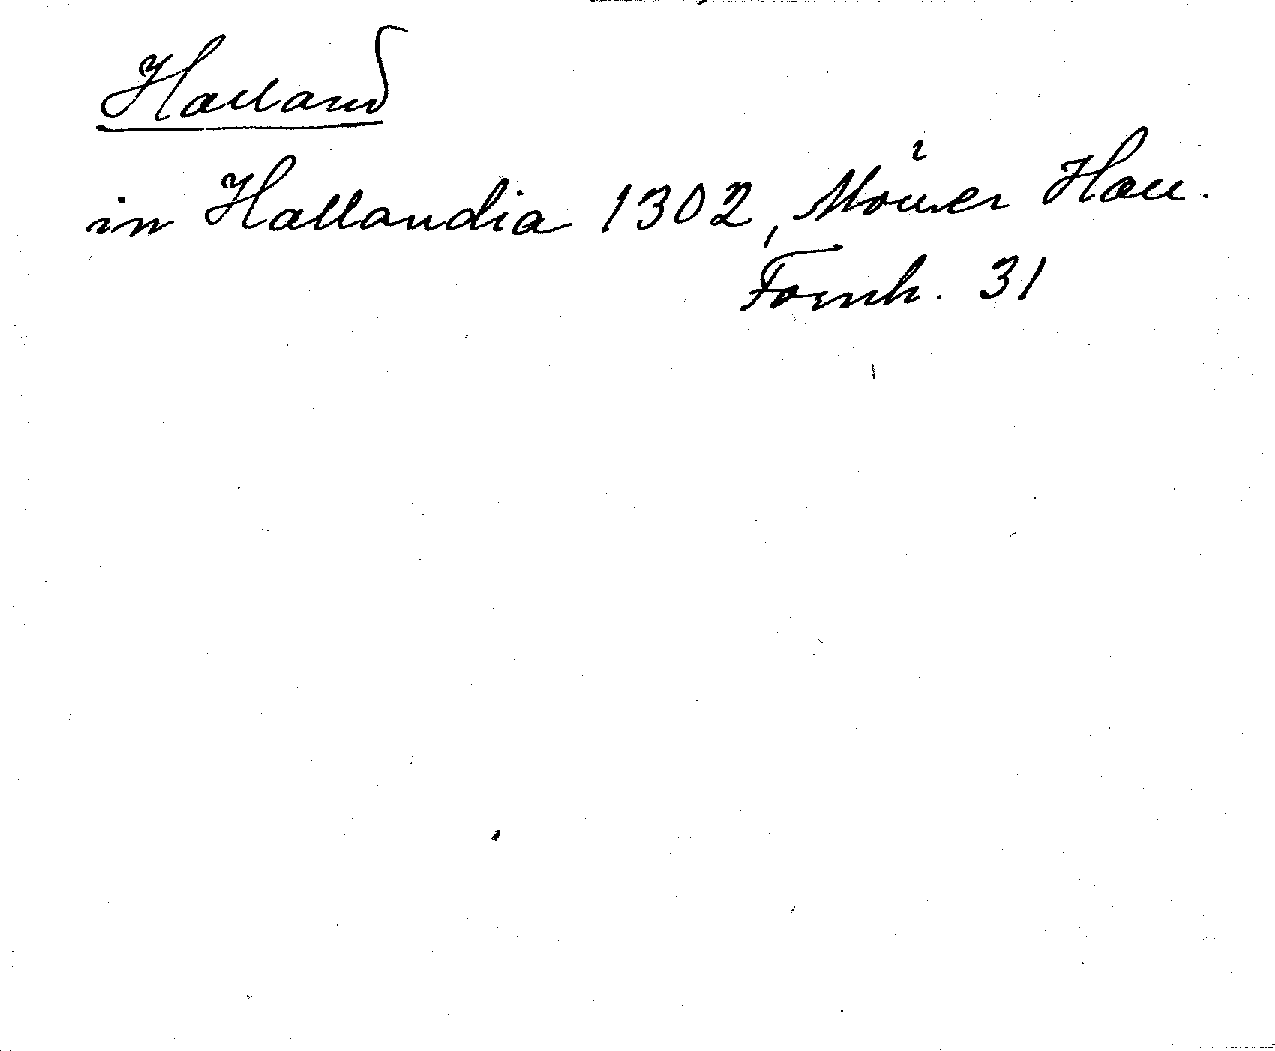 Halland
in Hallandia 1302, Möller Hall.
Fornh. 31